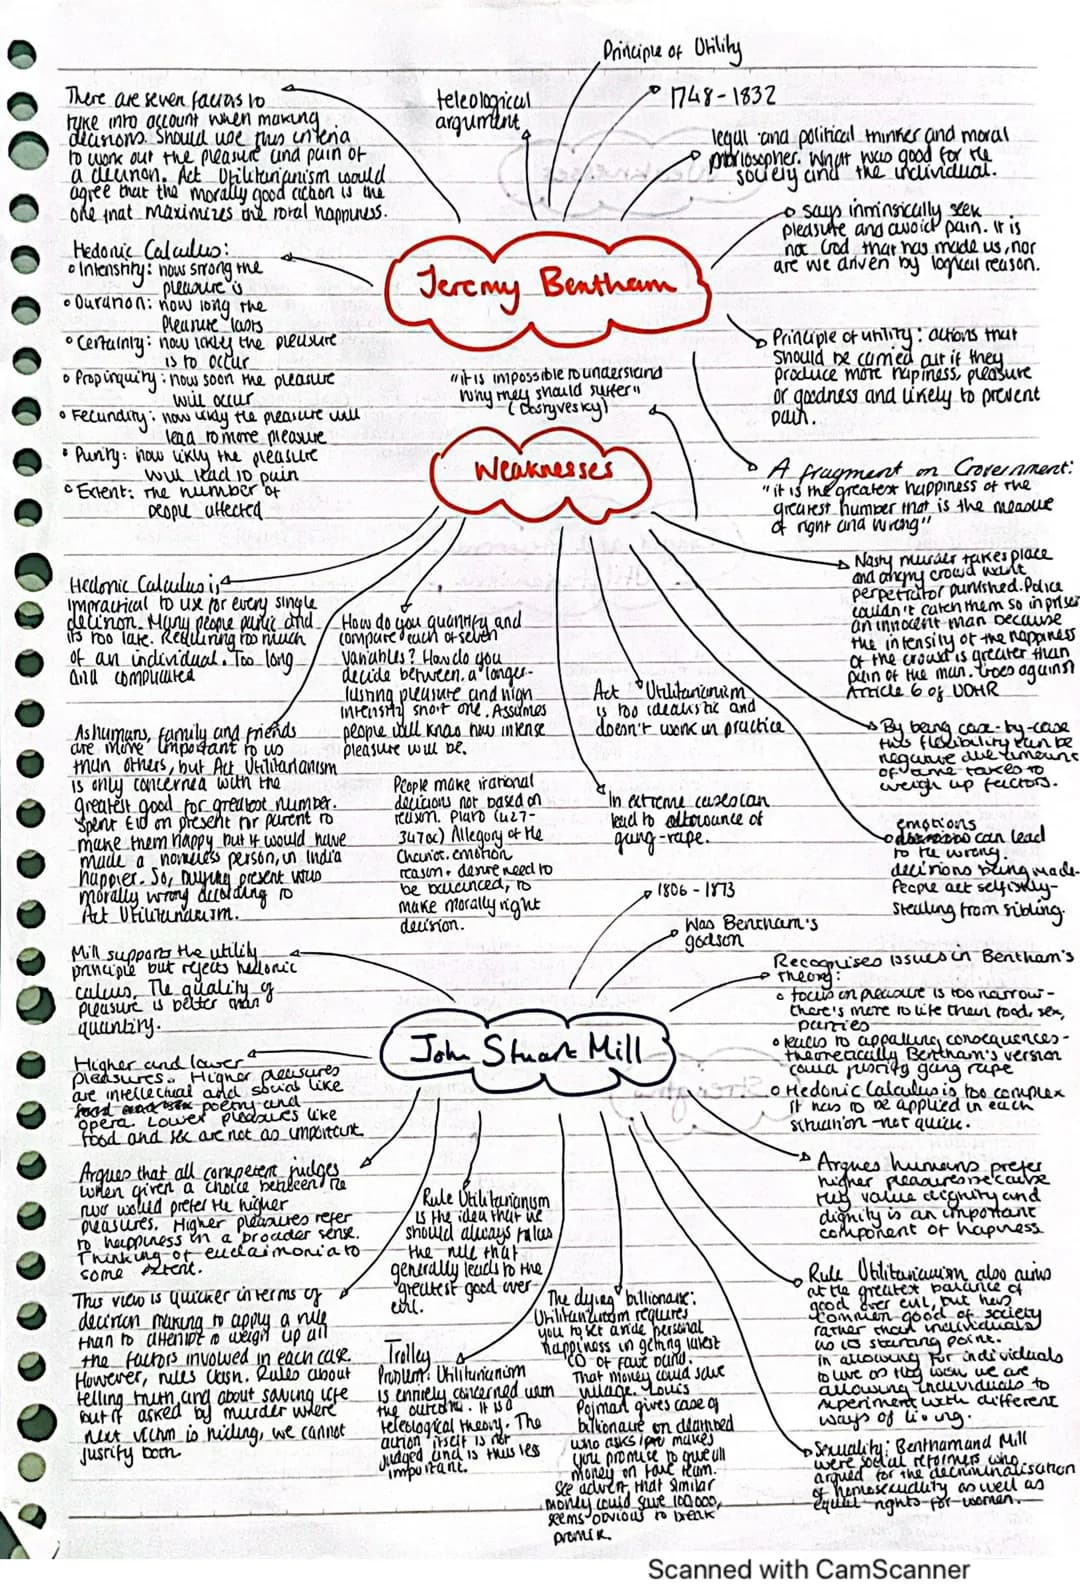 Principle of Utility
teleological
argument
1748-1832
legal and political thinker and moral
philosopher. What was good for the
society and the individual.
There are seven factors to
take into account when making
decisions. Should use this criteria
to work out the pleasure and pain of
a decision. Act Utilitarianism would
agree that the morally good action is the
one that maximizes the total happiness.
says intrinsically seek
pleasure and avoid pain. It is
not God that has made us, nor
are we driven by logical reason.
Jeremy Bentham
Hedonic Calculus:
Intensity: how strong the
pleasure is
Duration: how long the
pleasure lasts
Certainty: how likely the pleasure
is to occur
Propinquity: how soon the pleasure
will occur
Fecundity: how likly the pleasure will
lead to more pleasure
Purity: how likly the pleasure
will lead to pain
Extent: the number of
people affected
Principle of utility: actions that
should be carried out if they
produce more hapiness, pleasure
or goodness and likely to prevent
pain.
"it is impossible to understand
why they should suffer"
A fragment on Government:
"it is the greatest happiness of the
greatest number that is the measure
of right and wrong"
Weaknesses
Nasty murder takes place
and angry crowd want
perpetrator punished. Police
couldn't catch them so
an innocent man because
the intensity of the happiness
of the crowd is greater than
pain of the man. Goes against
Article 6 of UDHR
Hedonic Calculus is
impractical to use for every single
decision. Many people panic and
its too late. Requiring too much
of an individual. Too long
and complicated
How do you quantify and
compare each of seven
variables? How do you
decide between a longer-
lasting pleasure and high
intensity short one. Assumes
people will know how intense
pleasure will be.
Act Utilitarianism
is too idealistic and
doesn't work in practice
By being case-by-case
this flexibility can be
negative due amount
of time takes to
weigh up factors.
As humans, family and friends
are more important to us
than others, but Act Utilitarianism
is only concerned with the
greatest good for greatest number.
Spent £10 on present for parent to
make them happy but it would have
made a homeless person, in India
happier. So, buying present was
morally wrong according to
Act Utilitarianism.
People make irrational
decisions not based on
reason. Plato (427-
347bc) Allegory of the
Chariot. emotion
reason + desire need to
be balanced, to
make morally right
decision.
In extreme cases can
lead to allowance of
gang-rape.
emotions
can lead
to the wrong
decisions being made-
People act selfishly-
stealing from sibling.
1806-1873
Was Bentham's
godson
Mill supports the utility
principle but rejects hedonic
calculus. The quality of
pleasure is better than
quantity.
Recognises issues in Bentham's
theory:
focus on pleasure is too narrow-
there's more to life than food, sex,
parties
leads to appalling consequences-
theoretically Bentham's version
could justify gang rape
Hedonic Calculus is too complex
it has to be applied in each
situation - not quick.
John Stuart Mill
Higher and lower
pleasures. Higher pleasures
are intellectual and social like
food and sex poetry and
opera. Lower pleasures like
food and sex are not as important
Argues that all competent judges
when given a choice between the
two would prefer the higher
pleasures. Higher pleasures refer
to happiness in a broader sense.
Thinking of eudaimonia to
some extent.
Rule Utilitarianism
is the idea that we
should always follow
the rule that
generally leads to the
greatest good over
evil.
Argues humans prefer
higher pleasures because
they value dignity and
dignity is an important
component of hapiness
This view is quicker in terms of
decision making to apply a rule
than to attempt to weigh up all
the factors involved in each case.
However, rules clash. Rules about
telling truth and about saving life
but if asked by murder where
next victim is hiding, we cannot
justify both
Trolley
Problem: Utilitarianism
is entirely concerned with
the outcome. It is a
teleological theory. The
action itself is not
judged and is thus less
important.
The dying billionaire:
Utilitarianism requires
you to set aside personal
happiness in getting latest
CD of fave band.
That money could save
village. Louis
Pojman gives case of
billionaire on deathbed
who makes
you promise to give all
money on fave team.
See advert, that similar
money could save 100,000,
seems obvious to break
promise.
Rule Utilitarianism also aims
at the greatest balance of
good over evil, but has
common good of society
rather than individuals
as its starting point.
In allowing for individuals
to live as they wish we are
allowing individuals to
experiment with different
ways of living.
Sexuality: Bentham and Mill
were social reformers who
argued for the decriminalisation
of homosexuality as well as
equal rights for women.
Scanned with CamScanner